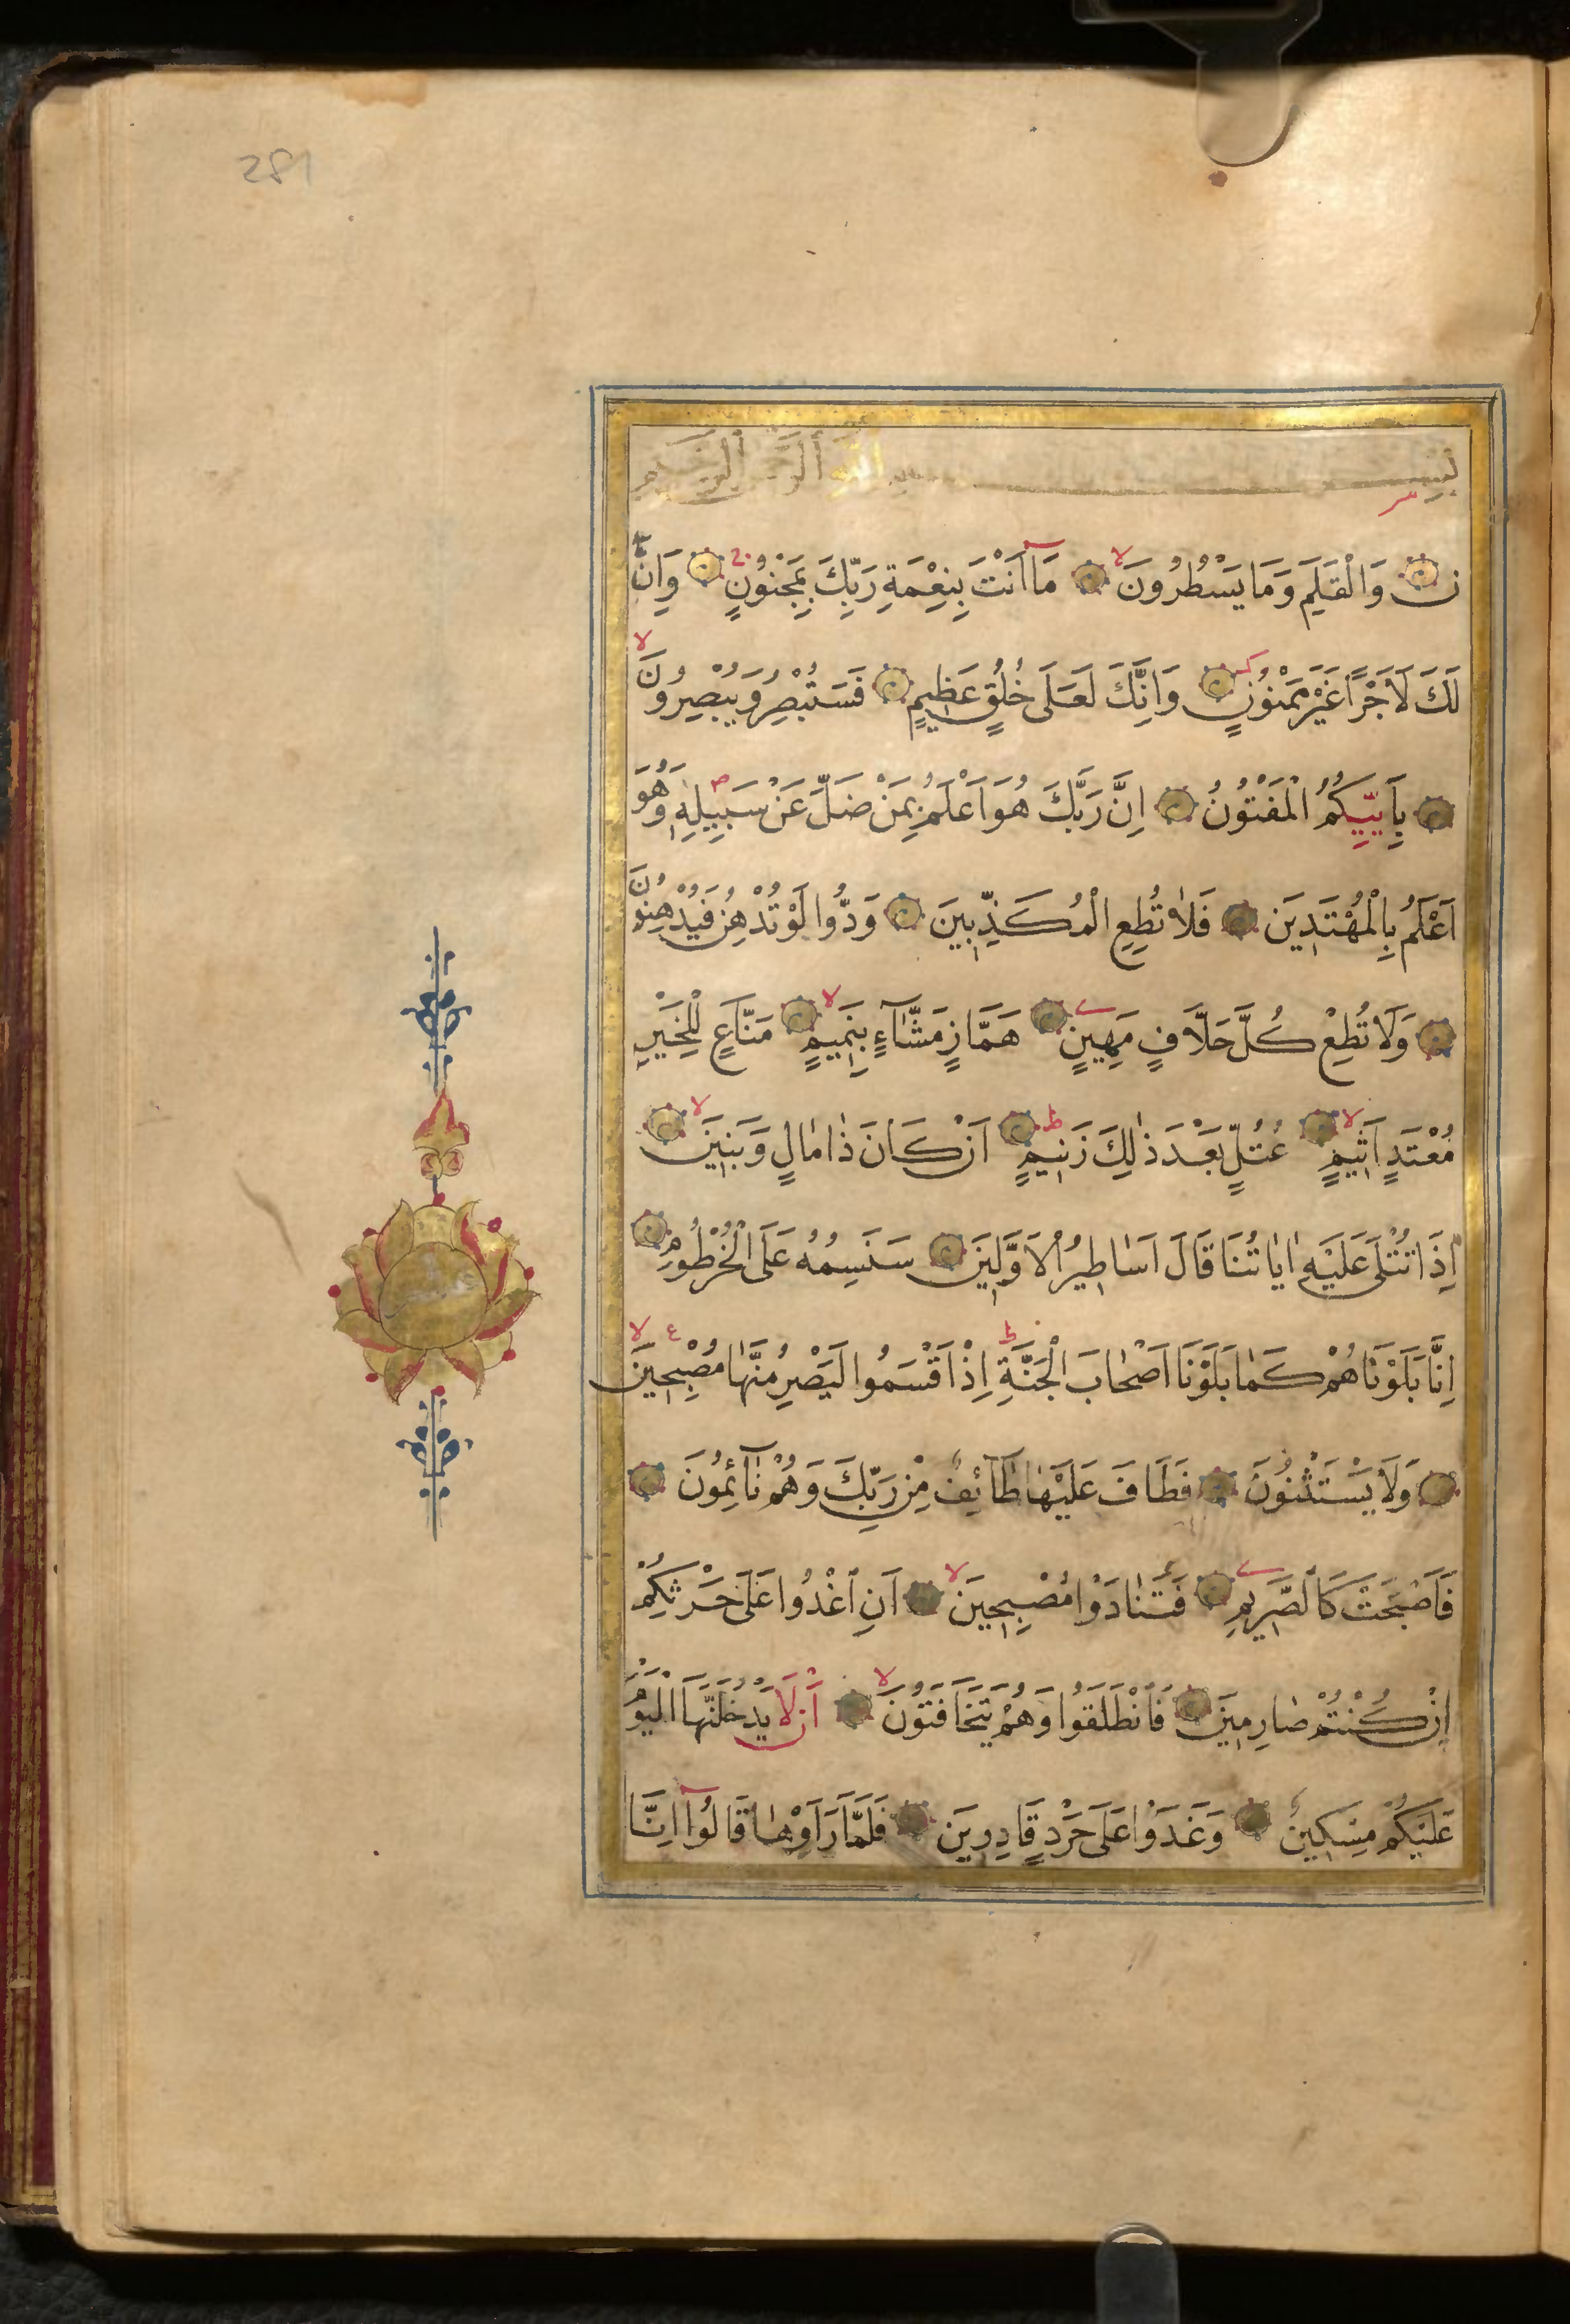 281
بِسْمِ اللّٰهِ الرَّحْمٰنِ الرَّحِيمِ
نۤ وَالْقَلَمِ وَمَا يَسْطُرُونَ مَۤا اَنْتَ بِنِعْمَةِ رَبِّكَ بِمَجْنُونٍ وَاِنَّ
لَكَ لَاَجْرًا غَيْرَ مَمْنُونٍ وَاِنَّكَ لَعَلٰى خُلُقٍ عَظِيمٍ فَسَتُبْصِرُ وَيُبْصِرُونَ
بِاَيِّيكُمُ الْمَفْتُونُ اِنَّ رَبَّكَ هُوَ اَعْلَمُ بِمَنْ ضَلَّ عَنْ سَبِيلِهٖ وَهُوَ
اَعْلَمُ بِالْمُهْتَدِينَ فَلَا تُطِعِ الْمُكَذِّبِينَ وَدُّوا لَوْ تُدْهِنُ فَيُدْهِنُونَ
وَلَا تُطِعْ كُلَّ حَلَّافٍ مَهِينٍ هَمَّازٍ مَشَّۤاءٍ بِنَمِيمٍ مَنَّاعٍ لِلْخَيْرِ
مُعْتَدٍ اَثِيمٍ عُتُلٍّ بَعْدَ ذٰلِكَ زَنِيمٍ اَنْ كَانَ ذَا مَالٍ وَبَنِينَ
اِذَا تُتْلٰى عَلَيْهِ اٰيَاتُنَا قَالَ اَسَاطِيرُ الْاَوَّلِينَ سَنَسِمُهُ عَلَى الْخُرْطُومِ
اِنَّا بَلَوْنَاهُمْ كَمَا بَلَوْنَا اَصْحَابَ الْجَنَّةِ اِذْ اَقْسَمُوا لَيَصْرِمُنَّهَا مُصْبِحِينَ
وَلَا يَسْتَثْنُونَ فَطَافَ عَلَيْهَا طَۤائِفٌ مِنْ رَبِّكَ وَهُمْ نَۤائِمُونَ
فَاَصْبَحَتْ كَالصَّرِيمِ فَتَنَادَوْا مُصْبِحِينَ اَنِ اغْدُوا عَلٰى حَرْثِكُمْ
اِنْ كُنْتُمْ صَارِمِينَ فَانْطَلَقُوا وَهُمْ يَتَخَافَتُونَ اَنْ لَا يَدْخُلَنَّهَا الْيَوْمَ
عَلَيْكُمْ مِسْكِينٌ وَغَدَوْا عَلٰى حَرْدٍ قَادِرِينَ فَلَمَّا رَاَوْهَا قَالُۤوا اِنَّا